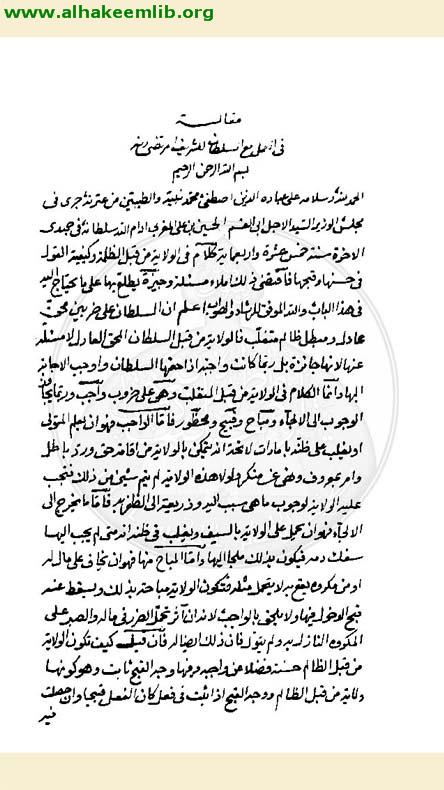 www.alhakeemlib.org
مقالة
في العمل مع السلطان للشريف المرتضى ره
بسم الله الرحمن الرحيم
الحمد لله وسلامه على عباده الذين اصطفى محمد نبيه والطيبين من عترته جرى في
مجلس الوزير السيد الاجل ابي القسم الحسين بن علي المغربي ادام الله سلطانه في جمادى
الاخرة سنة خمس عشرة واربعماية كلام في الولاية من قبل الظلمة وكيفية القول
في حسنها وقبحها فاقتضى ذلك املاء مسئلة وجيزة يطلع بها على ما يحتاج اليه
في هذا الباب والله الموفق للرشاد والصواب اعلم ان السلطان على ضربين محق
عادل ومبطل ظالم متغلب فالولاية من قبل السلطان المحق العادل لا مسئلة
عنها لانها جائزة بل ربما كانت واجبة اذا حتمها السلطان واوجب الاجابة
اليها وانما الكلام في الولاية من قبل المتغلب وهي على ضروب واجب وربما تجاوز
الوجوب الى الالجاء ومباح وقبيح ومحظور فاما الواجب فهو ان يعلم المتولي
او يغلب على ظنه بامارات لائحة انه يتمكن بالولاية من اقامة حق ودفع باطل
وامر بمعروف ونهي عن منكر ولولا هذه الولاية لم يتم شيء من ذلك فيجب
عليه الولاية لوجوب ما هي سبب اليه وذريعة الى الظفر به فاما ما يخرج الى
الالجاء فهو ان يحمل على الولاية بالسيف ويغلب في ظنه انه متى لم يجب اليها
سفك دمه فيكون بذلك ملجأ اليها واما المباح منها فهو ان يخاف على مال له
او من مكروه يقع به لا يتحمل مثله فتكون الولاية مباحة بذلك ويسقط عنه
قبح الدخول فيها ولا يلحق بالواجب لانه ان آثر تحمل الضرر في ماله والصبر على
المكروه النازل به ولم يتول كان ذلك ايضا له فان قيل كيف تكون الولاية
من قبل الظالم حسنة فضلا عن واجبة وفيها وجه القبح ثابت وهو كونها
ولاية من قبل الظالم ووجه القبح اذا ثبت في فعل كان الفعل قبيحا وان حصلت
فيه